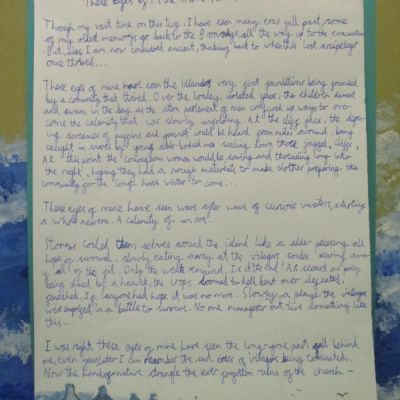 These Eyes of Mine
Though my vast time on this          , I have seen many eras fall past, some
of my oldest memorys go back to the Bronze age all the way up to the evacuation
But, alas I am now concidered ancient, thinking back to when this lost arcipelago
once thrived...
These eyes of mine have seen the Islandes very first foundations being grounded
by a comunity that thrived. Over the lonley isolated years, the children danced
and swam in the bay as the stern parlement of men conjured up ways to over-
come the calamity that was slowly unfolding. At the cliffs face, the
screames of puffins and gannets could be heard from miles around, being
caught in snares by young able-bodied men scaling down those jagged, cliffs,
At this point the couragious women would be sewing and threading long into
the night, hoping they had enough materials to make clothes preparing the
community for the long harsh winter to come...
These eyes of mine have seen wave after wave of curious visitors, starting
a whole new era. A calamity of an era...
Storms coiled them selves around the island like a          seizing all
hope of survival, slowly eating away at the villages          away
all of the         . Only the weak remaind, Is it the end? As         an
being sliced by a        , the crops, doomed to hell bent over defeated,
famished. If anyone had hope it was no more. Slowly, a plague the villages
were engaged in a battle to survive. No one maneges to out live something like
this...
I was right these eyes of mine have seen the long-gone past fall behind
me, even years later I can remember the sad cries of villagers being evacuated.
Now the hands of nature strangle the ever forgotten ruins of the church –